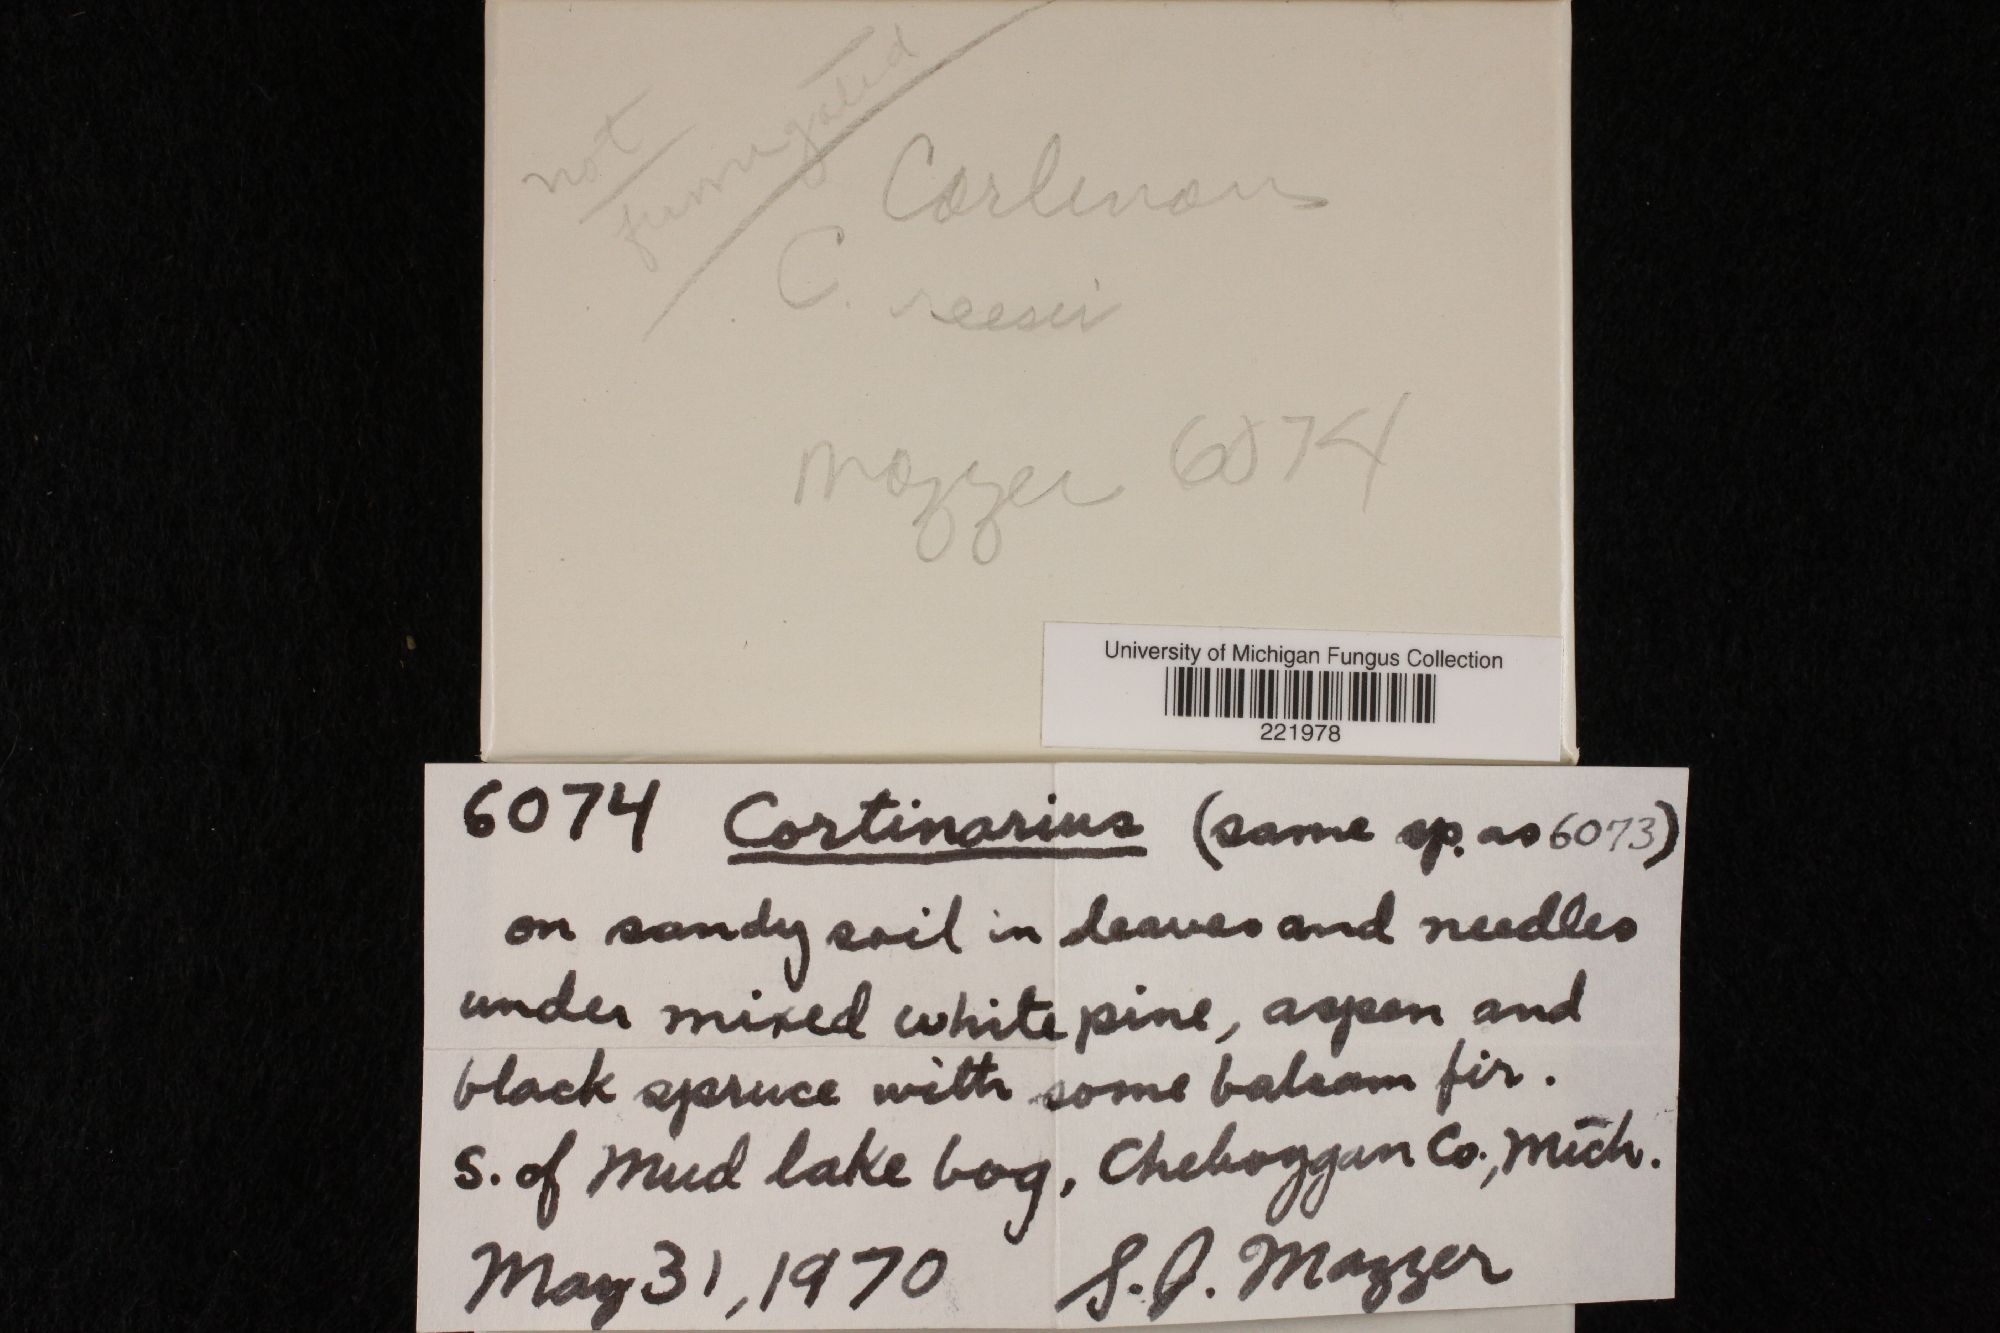 not
fumigated
Cortinarius
C. reesii
Mazzer 6074
University of Michigan Fungus Collection
221978
6074 Cortinarius (same sp. as 6073)
on sandy soil in leaves and needles
under mixed white pine, aspen and
black spruce with some balsam fir.
S. of Mud lake bog, Cheboygan Co., Mich.
May 31, 1970 S. J. Mazzer